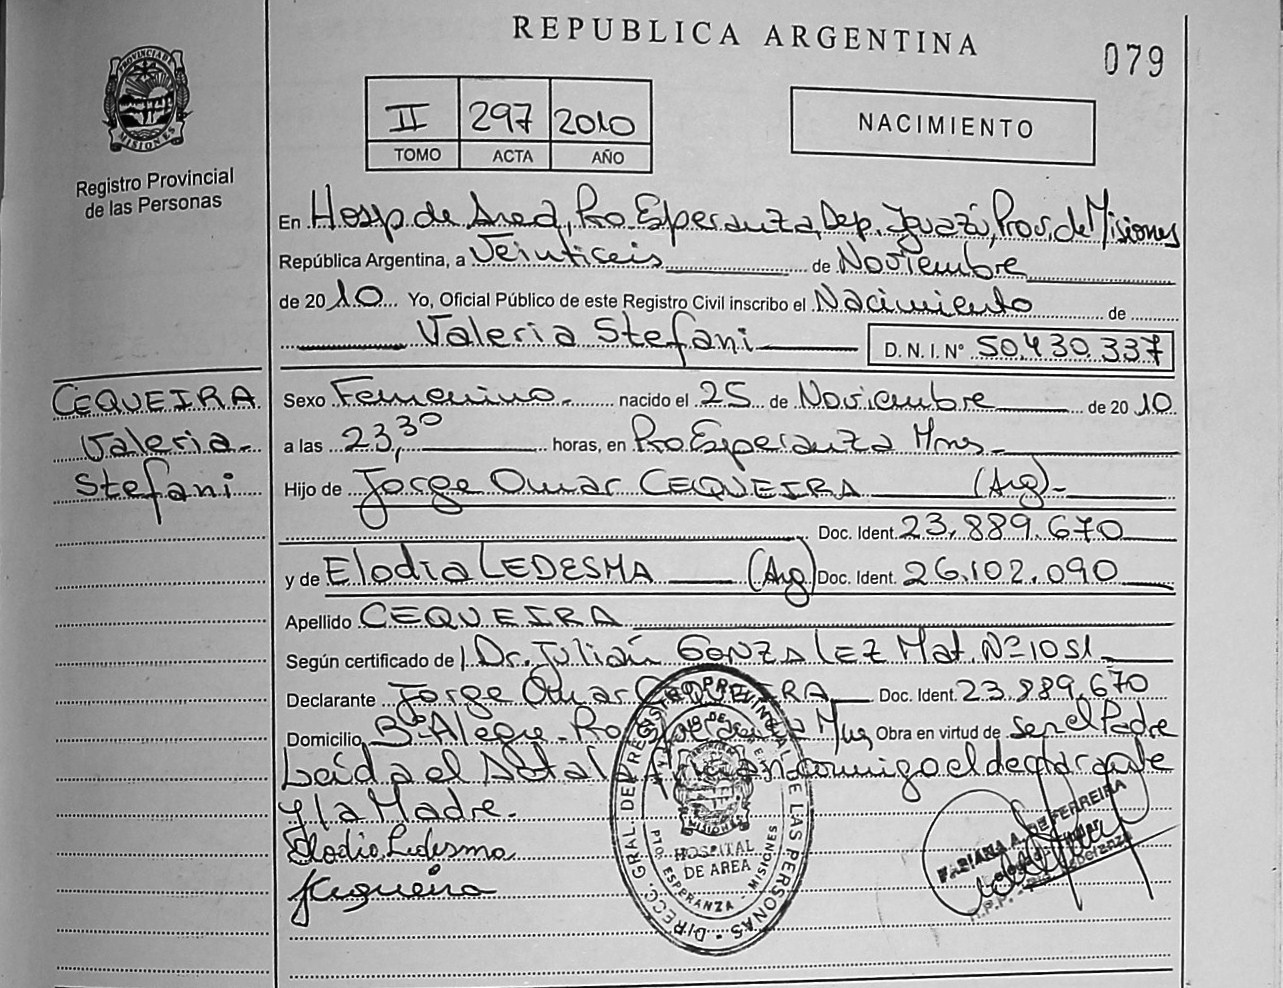 REPUBLICA ARGENTINA
079
PROVINCIA DE MISIONES
Registro Provincial
de las Personas
II 297 2010
TOMO ACTA AÑO
NACIMIENTO
En Hosp. de Area, Pto Esperanza, Dep. Iguazú, Prov. de Misiones
República Argentina, a Veinticeis de Noviembre
de 2010 Yo, Oficial Público de este Registro Civil inscribo el Nacimiento de
Valeria Stefani D. N. I. Nº 50.430.337
CEQUEIRA
Valeria
Stefani
Sexo Femenino nacido el 25 de Noviembre de 2010
a las 23,30 horas, en Pto Esperanza Mnes
Hijo de Jorge Omar CEQUEIRA (Arg)
Doc. Ident. 23.889.670
y de Elodia LEDESMA (Arg) Doc. Ident. 26.102.090
Apellido CEQUEIRA
Según certificado de Dr. Julián GONZALEZ Mat. Nº 1051
Declarante Jorge Omar CEQUEIRA Doc. Ident. 23.889.670
Domicilio Bº Alegre - Pto Esperanza Mnes Obra en virtud de ser el Padre
Leída el Acta la firman conmigo el declarante
y la Madre.
Elodia Ledesma
JCequeira
DIRECC. GRAL. DEL REGISTRO PROVINCIAL DE LAS PERSONAS
MISIONES
HOSPITAL
DE AREA
PTO. ESPERANZA - MISIONES
FABIANA A. DE FERREIRA